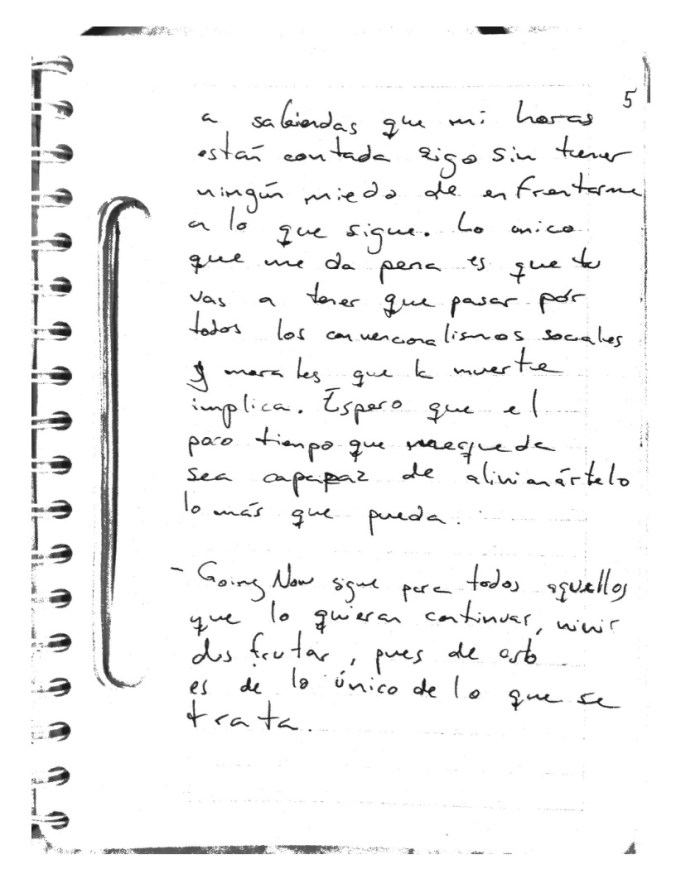 5
a sabiendas que mi horas
están contada sigo sin tener
ningún miedo de enfrentarme
a lo que sigue. Lo unico
que me da pena es que tu
vas a tener que pasar por
todos los convencionalismos sociales
y morales que la muerte
implica. Espero que el
poco tiempo que me queda
sea capapaz de alivianártelo
lo más que pueda.
- Going Now sigue para todos aquellos
que lo quieran continuar, vivir
disfrutar, pues de esto
es de lo único de lo que se
trata.